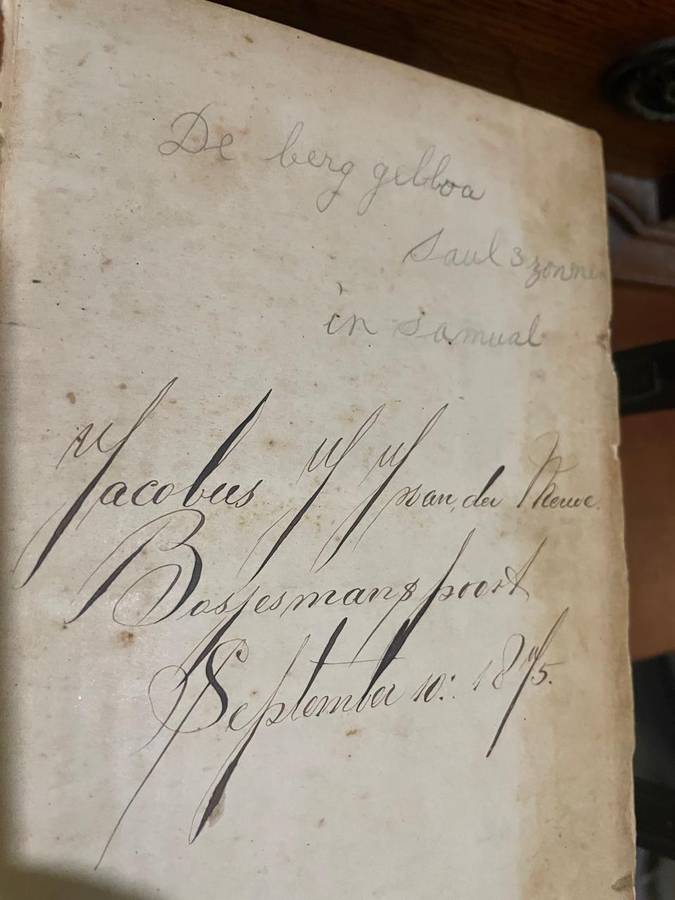 De berg gebboa
Saul 3 zonne
in Samual
Jacobus J J van der Merwe.
Bosjesmanspoort
September 10: 1875.